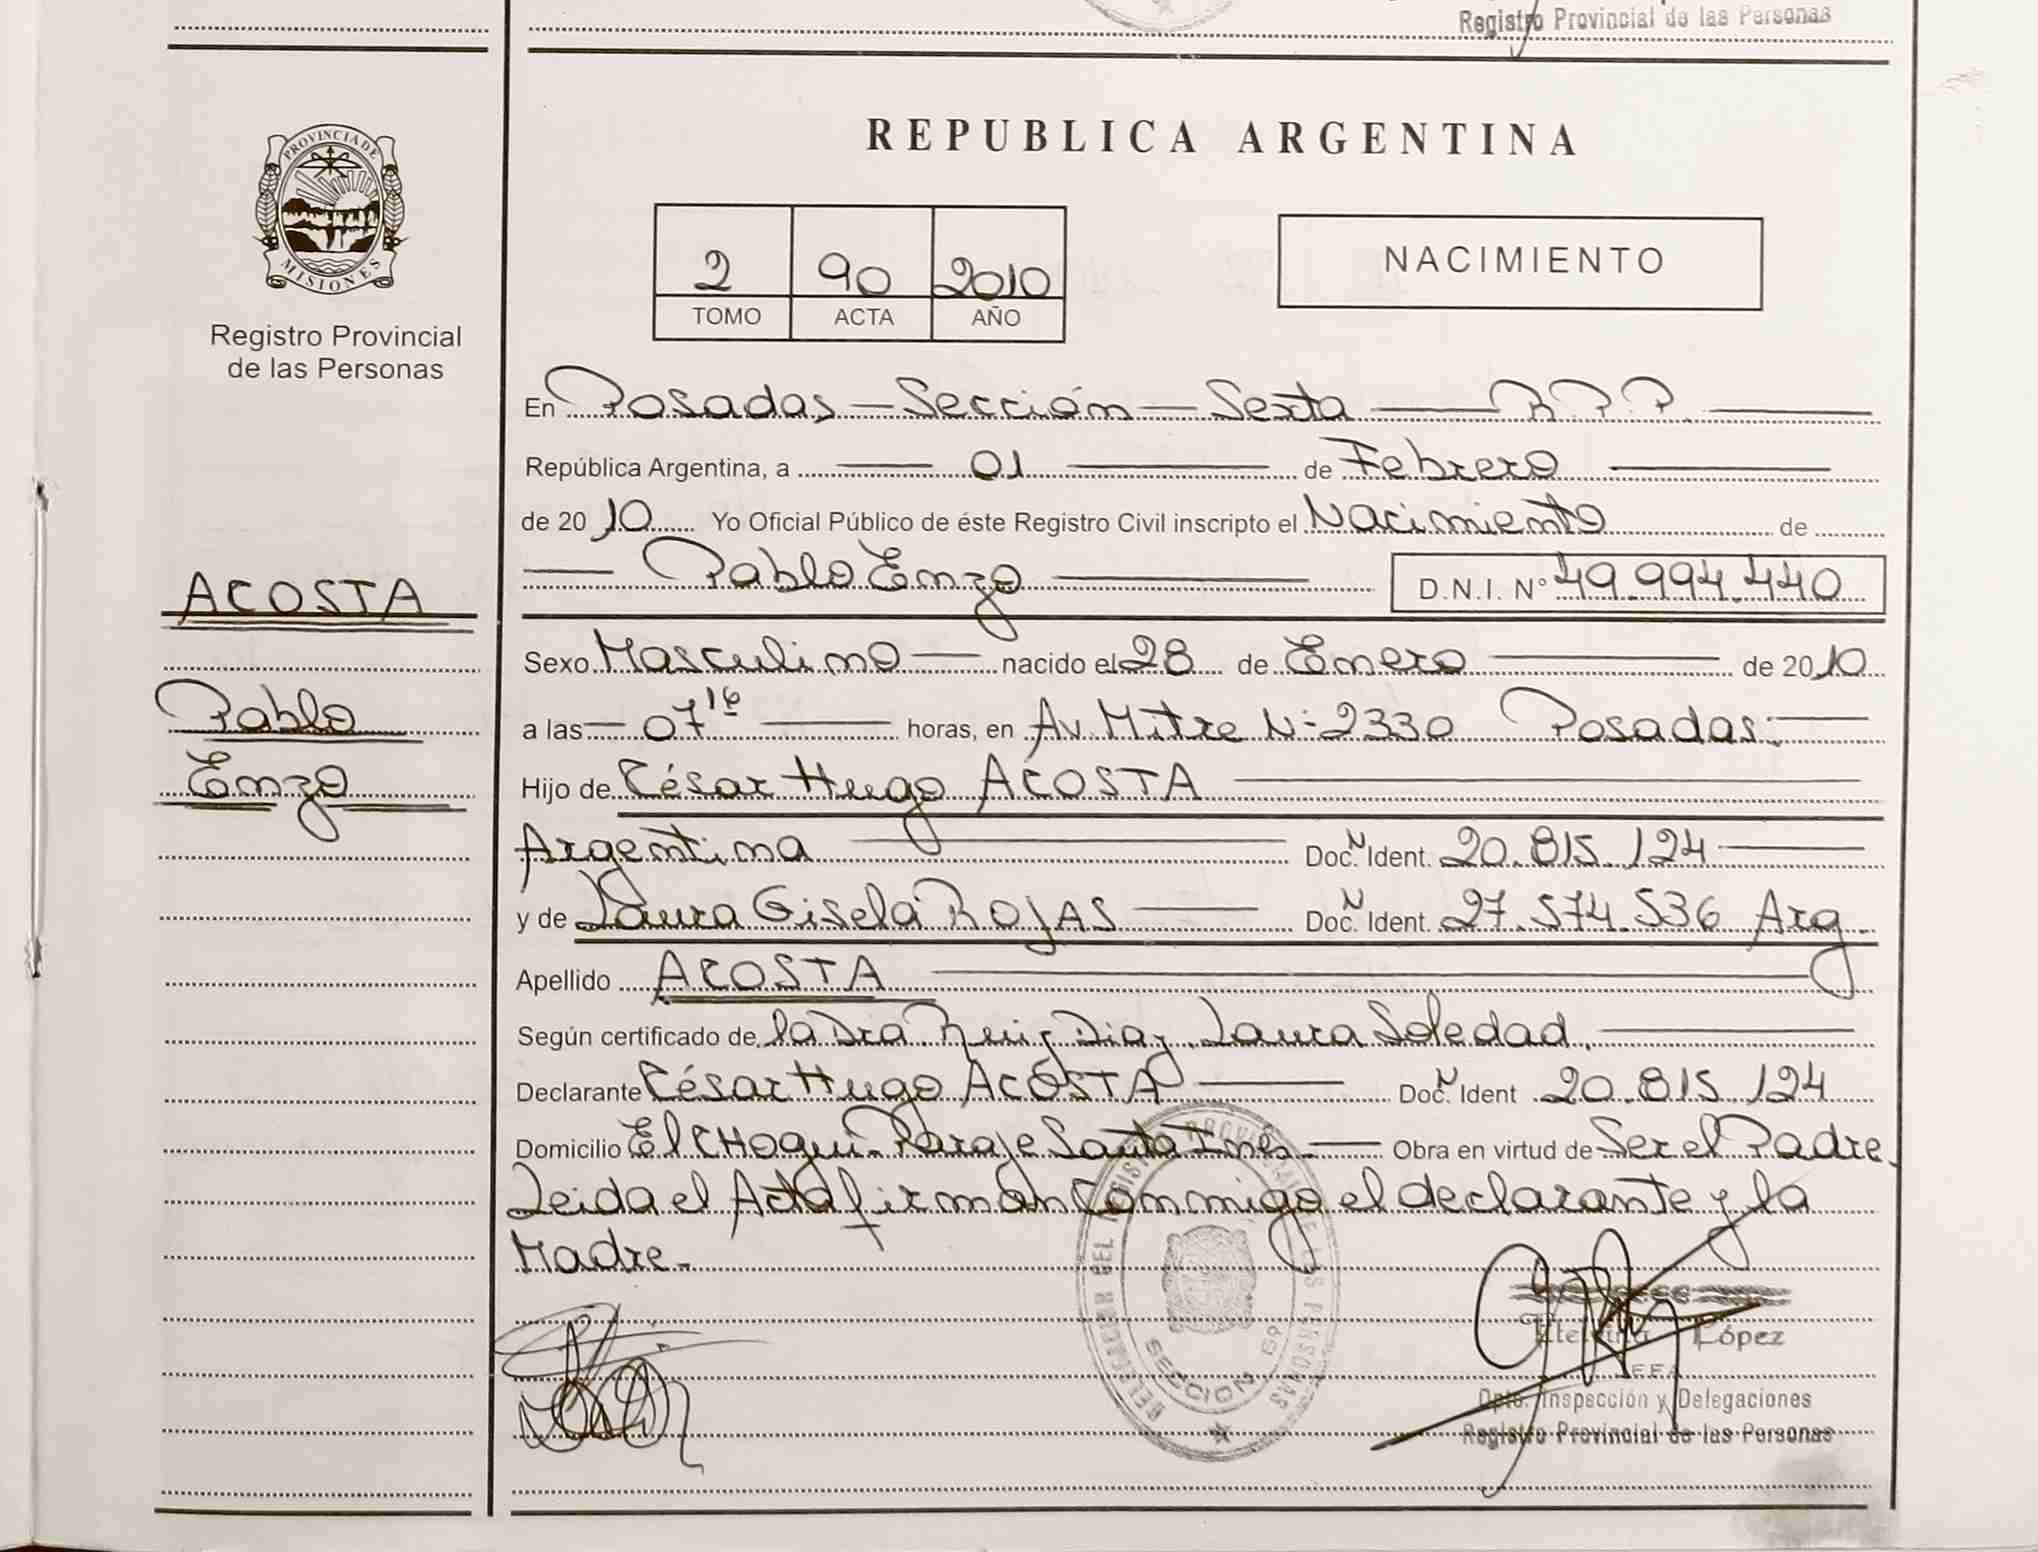 Registro Provincial de las Personas
PROVINCIA DE
MISIONES
Registro Provincial
de las Personas
ACOSTA
Pablo
Enzo
REPUBLICA ARGENTINA
2 90 2010
TOMO ACTA AÑO
NACIMIENTO
En Posadas - Sección - Sexta - R.P.P.
República Argentina, a 01 de Febrero
de 2010 Yo Oficial Público de éste Registro Civil inscripto el Nacimiento de
Pablo Enzo D.N.I. N° 49.994.440
Sexo Masculino nacido el 28 de Enero de 2010
a las 07 16 horas, en Av. Mitre N° 2330 Posadas.
Hijo de César Hugo ACOSTA
Argentina Doc. N Ident. 20.815.124
y de Laura Gisela ROJAS Doc. N Ident. 27.574.536 Arg.
Apellido ACOSTA
Según certificado de la Dra. Ruiz Diaz, Laura Soledad.
Declarante César Hugo ACOSTA Doc. N Ident 20.815.124
Domicilio El CHOqui - Paraje Santa Inés. Obra en virtud de Ser el Padre.
Leida el Acta firman Conmigo el declarante y la
Madre.
DELEGACION DEL REGISTRO PROVINCIAL DE LAS PERSONAS
SECCION 6a
López
Dpto. Inspección y Delegaciones
Registro Provincial de las Personas